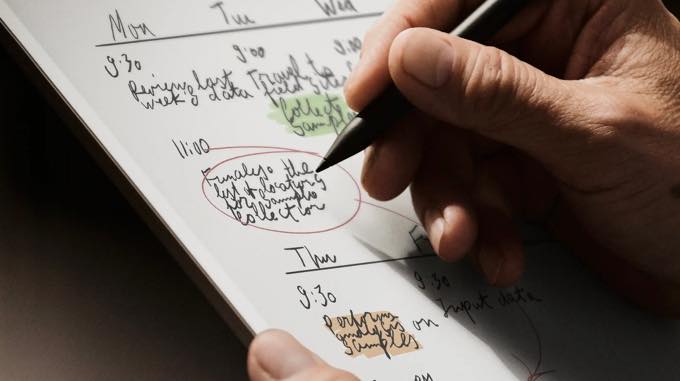 Mon Tue Wed
9:30 9:00 9:00
Review last
week's data
Travel to
field sites
Collect
samples
11:00
Finalise the
list of locations
for sample
collection
Thu
9:30 9:30
Perform
analysis on
samples
Input data